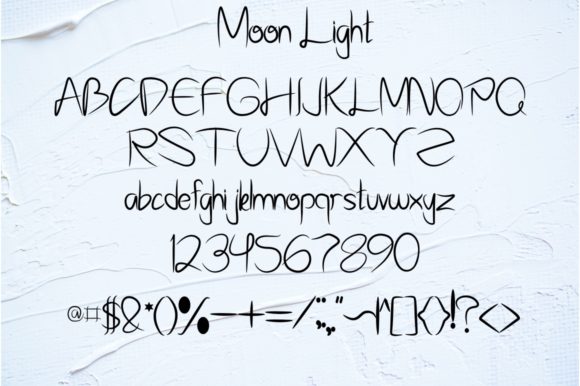 Moon Light
ABCDEFGHIJKLMNOPQ
RSTUVWXYZ
abcdefghijklmnopqrstuvwxyz
1234567890
@#$&*()%-+=/:;,"~^[]{}!?<>